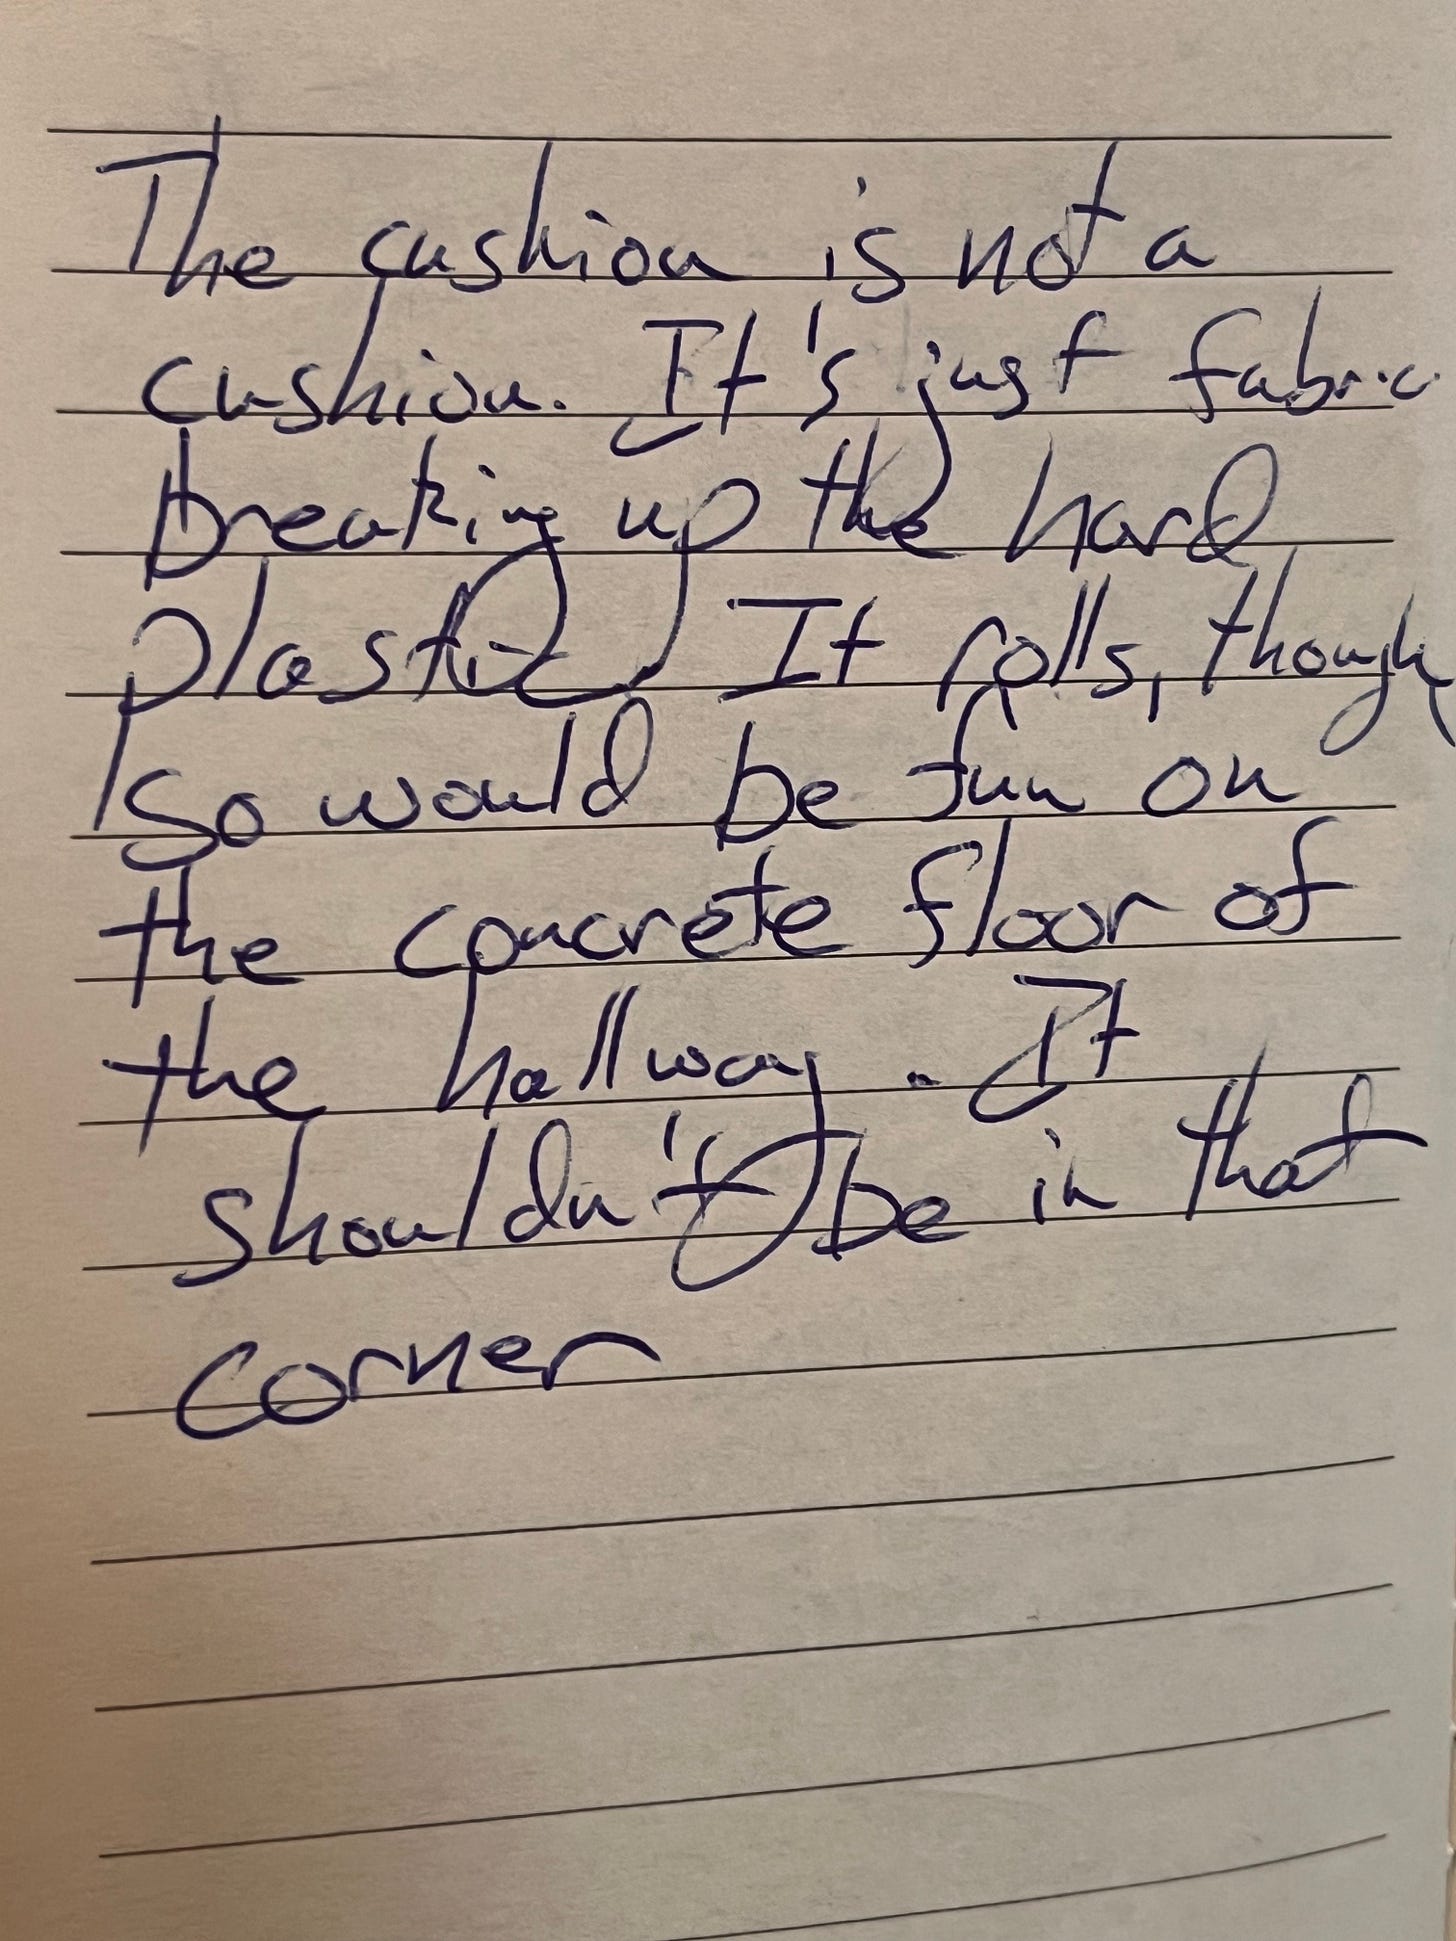 The cushion is not a
cushion. It's just fabric
breaking up the hard
plastic It rolls, though,
so would be fun on
the concrete floor of
the hallway. It
shouldn't be in that
corner